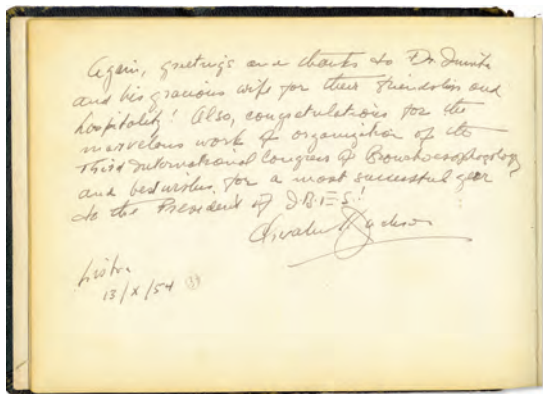 Again, greetings and thanks to Dr.
and his gracious wife for their friendship and
hospitality! Also, congratulations for the
marvelous work of organization of the
Third International Congress of Bronchoesophagology
and best wishes for a most successful year
to the President of I.B.E.S.!
Jackson
13/X/54 (39)